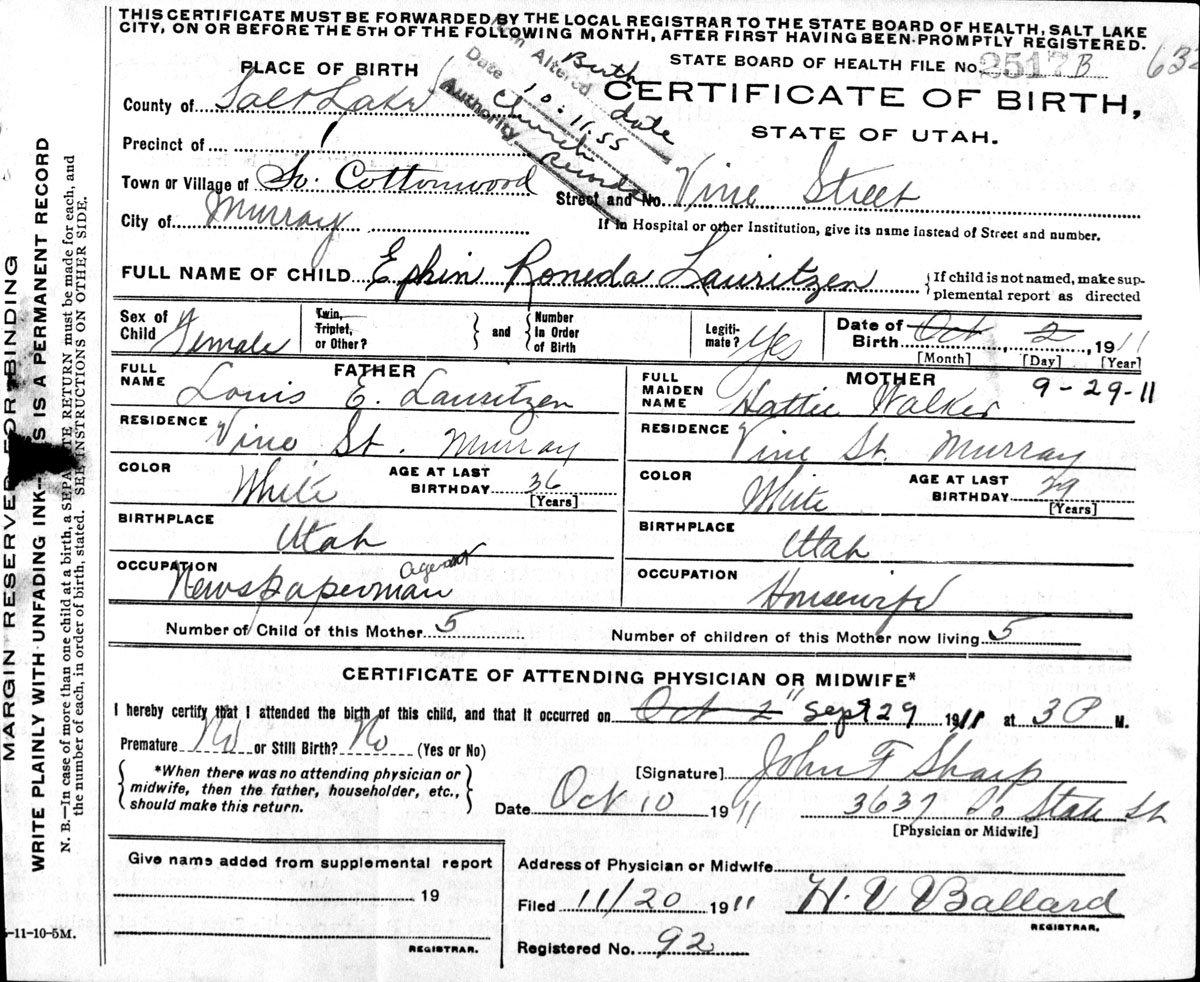 THIS CERTIFICATE MUST BE FORWARDED BY THE LOCAL REGISTRAR TO THE STATE BOARD OF HEALTH, SALT LAKE
CITY, ON OR BEFORE THE 5TH OF THE FOLLOWING MONTH, AFTER FIRST HAVING BEEN PROMPTLY REGISTERED.
STATE BOARD OF HEALTH FILE No. 2517 B 632
PLACE OF BIRTH
Altered Birth date
Date 10-11-55
Authority Church Records
CERTIFICATE OF BIRTH,
STATE OF UTAH.
County of Salt Lake
Precinct of 1
Town or Village of So. Cottonwood Street and No. Vine Street
City of Murray If in Hospital or other Institution, give its name instead of Street and number.
FULL NAME OF CHILD Ephin Roneda Lauritzen { If child is not named, make sup-
plemental report as directed
Sex of Child Female Twin, Triplet, or Other? } and { Number In Order of Birth Legiti-mate? Yes Date of Birth Oct 2, 1911
[Month] [Day] [Year]
FATHER MOTHER 9-29-11
FULL NAME Louis E. Lauritzen FULL MAIDEN NAME Hattie Walker
RESIDENCE Vine St. Murray RESIDENCE Vine St. Murray
COLOR White AGE AT LAST BIRTHDAY 36 [Years] COLOR White AGE AT LAST BIRTHDAY 29 [Years]
BIRTHPLACE Utah BIRTHPLACE Utah
OCCUPATION Newspaperman agent OCCUPATION Housewife
Number of Child of this Mother 5 Number of children of this Mother now living 5
CERTIFICATE OF ATTENDING PHYSICIAN OR MIDWIFE*
I hereby certify that I attended the birth of this child, and that it occurred on Oct 2" Sept 29 1911 at 3 P M.
Premature No or Still Birth? No (Yes or No)
{ *When there was no attending physician or
midwife, then the father, householder, etc.,
should make this return. }
[Signature] John F Sharp
Date Oct 10 1911 3637 So State St
[Physician or Midwife]
Give name added from supplemental report
19
REGISTRAR.
Address of Physician or Midwife
Filed 11/20 1911 H. V Ballard
REGISTRAR.
Registered No. 92
-11-10-5M.
MARGIN RESERVED FOR BINDING
WRITE PLAINLY WITH UNFADING INK— IS A PERMANENT RECORD
N. B.—In case of more than one child at a birth, a SEPARATE RETURN must be made for each, and
the number of each, in order of birth, stated. SEE INSTRUCTIONS ON OTHER SIDE.